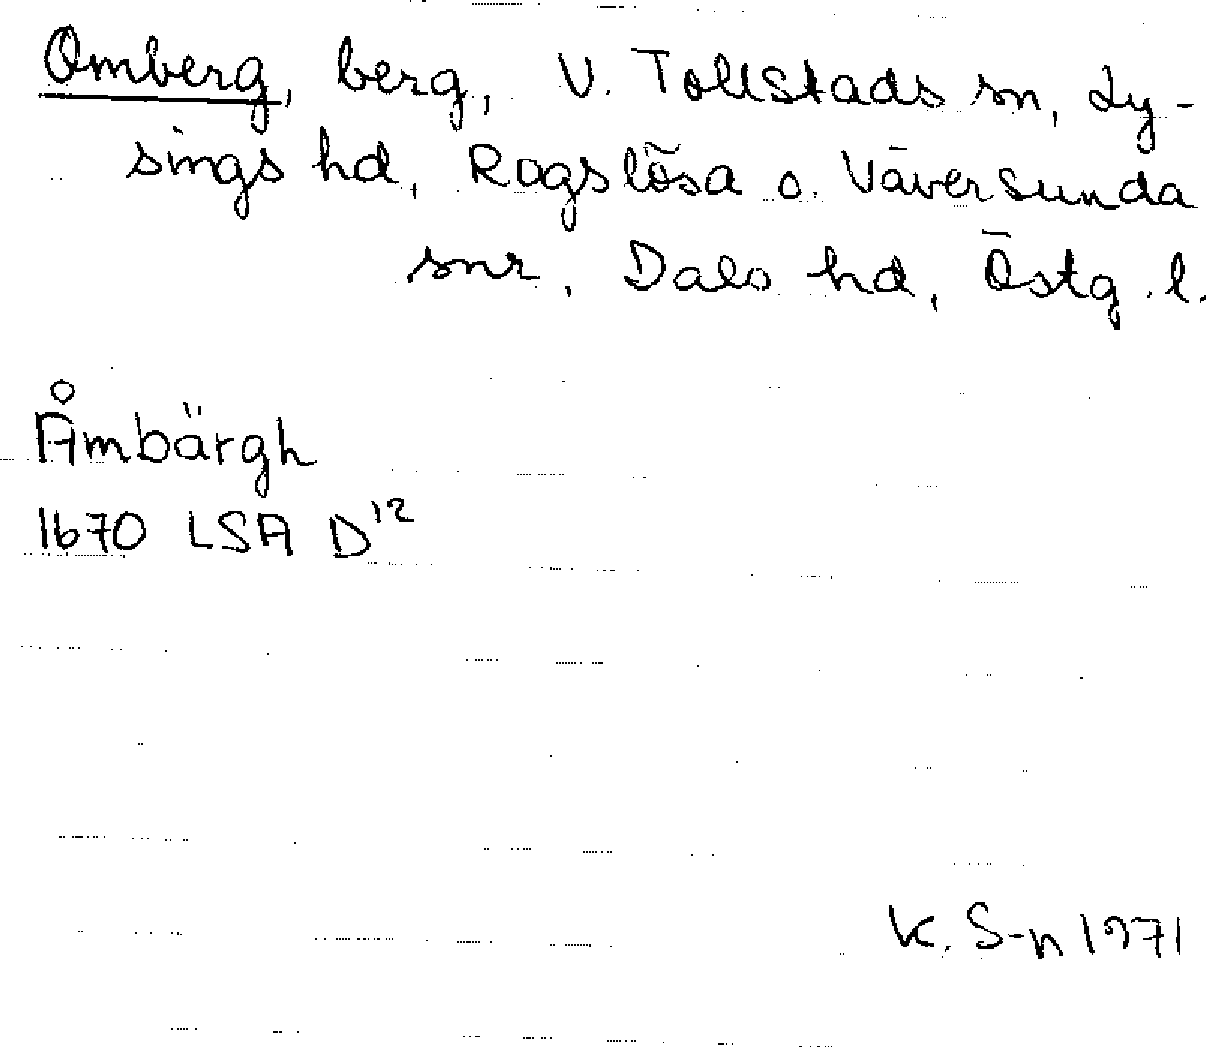 Omberg, berg, V. Tollstads sn, Ly-
sings hd, Rogslösa o. Väversunda
snr, Dals hd, Östg. l.
Åmbärgh
1670 LSA D¹²
K. S-n 1971